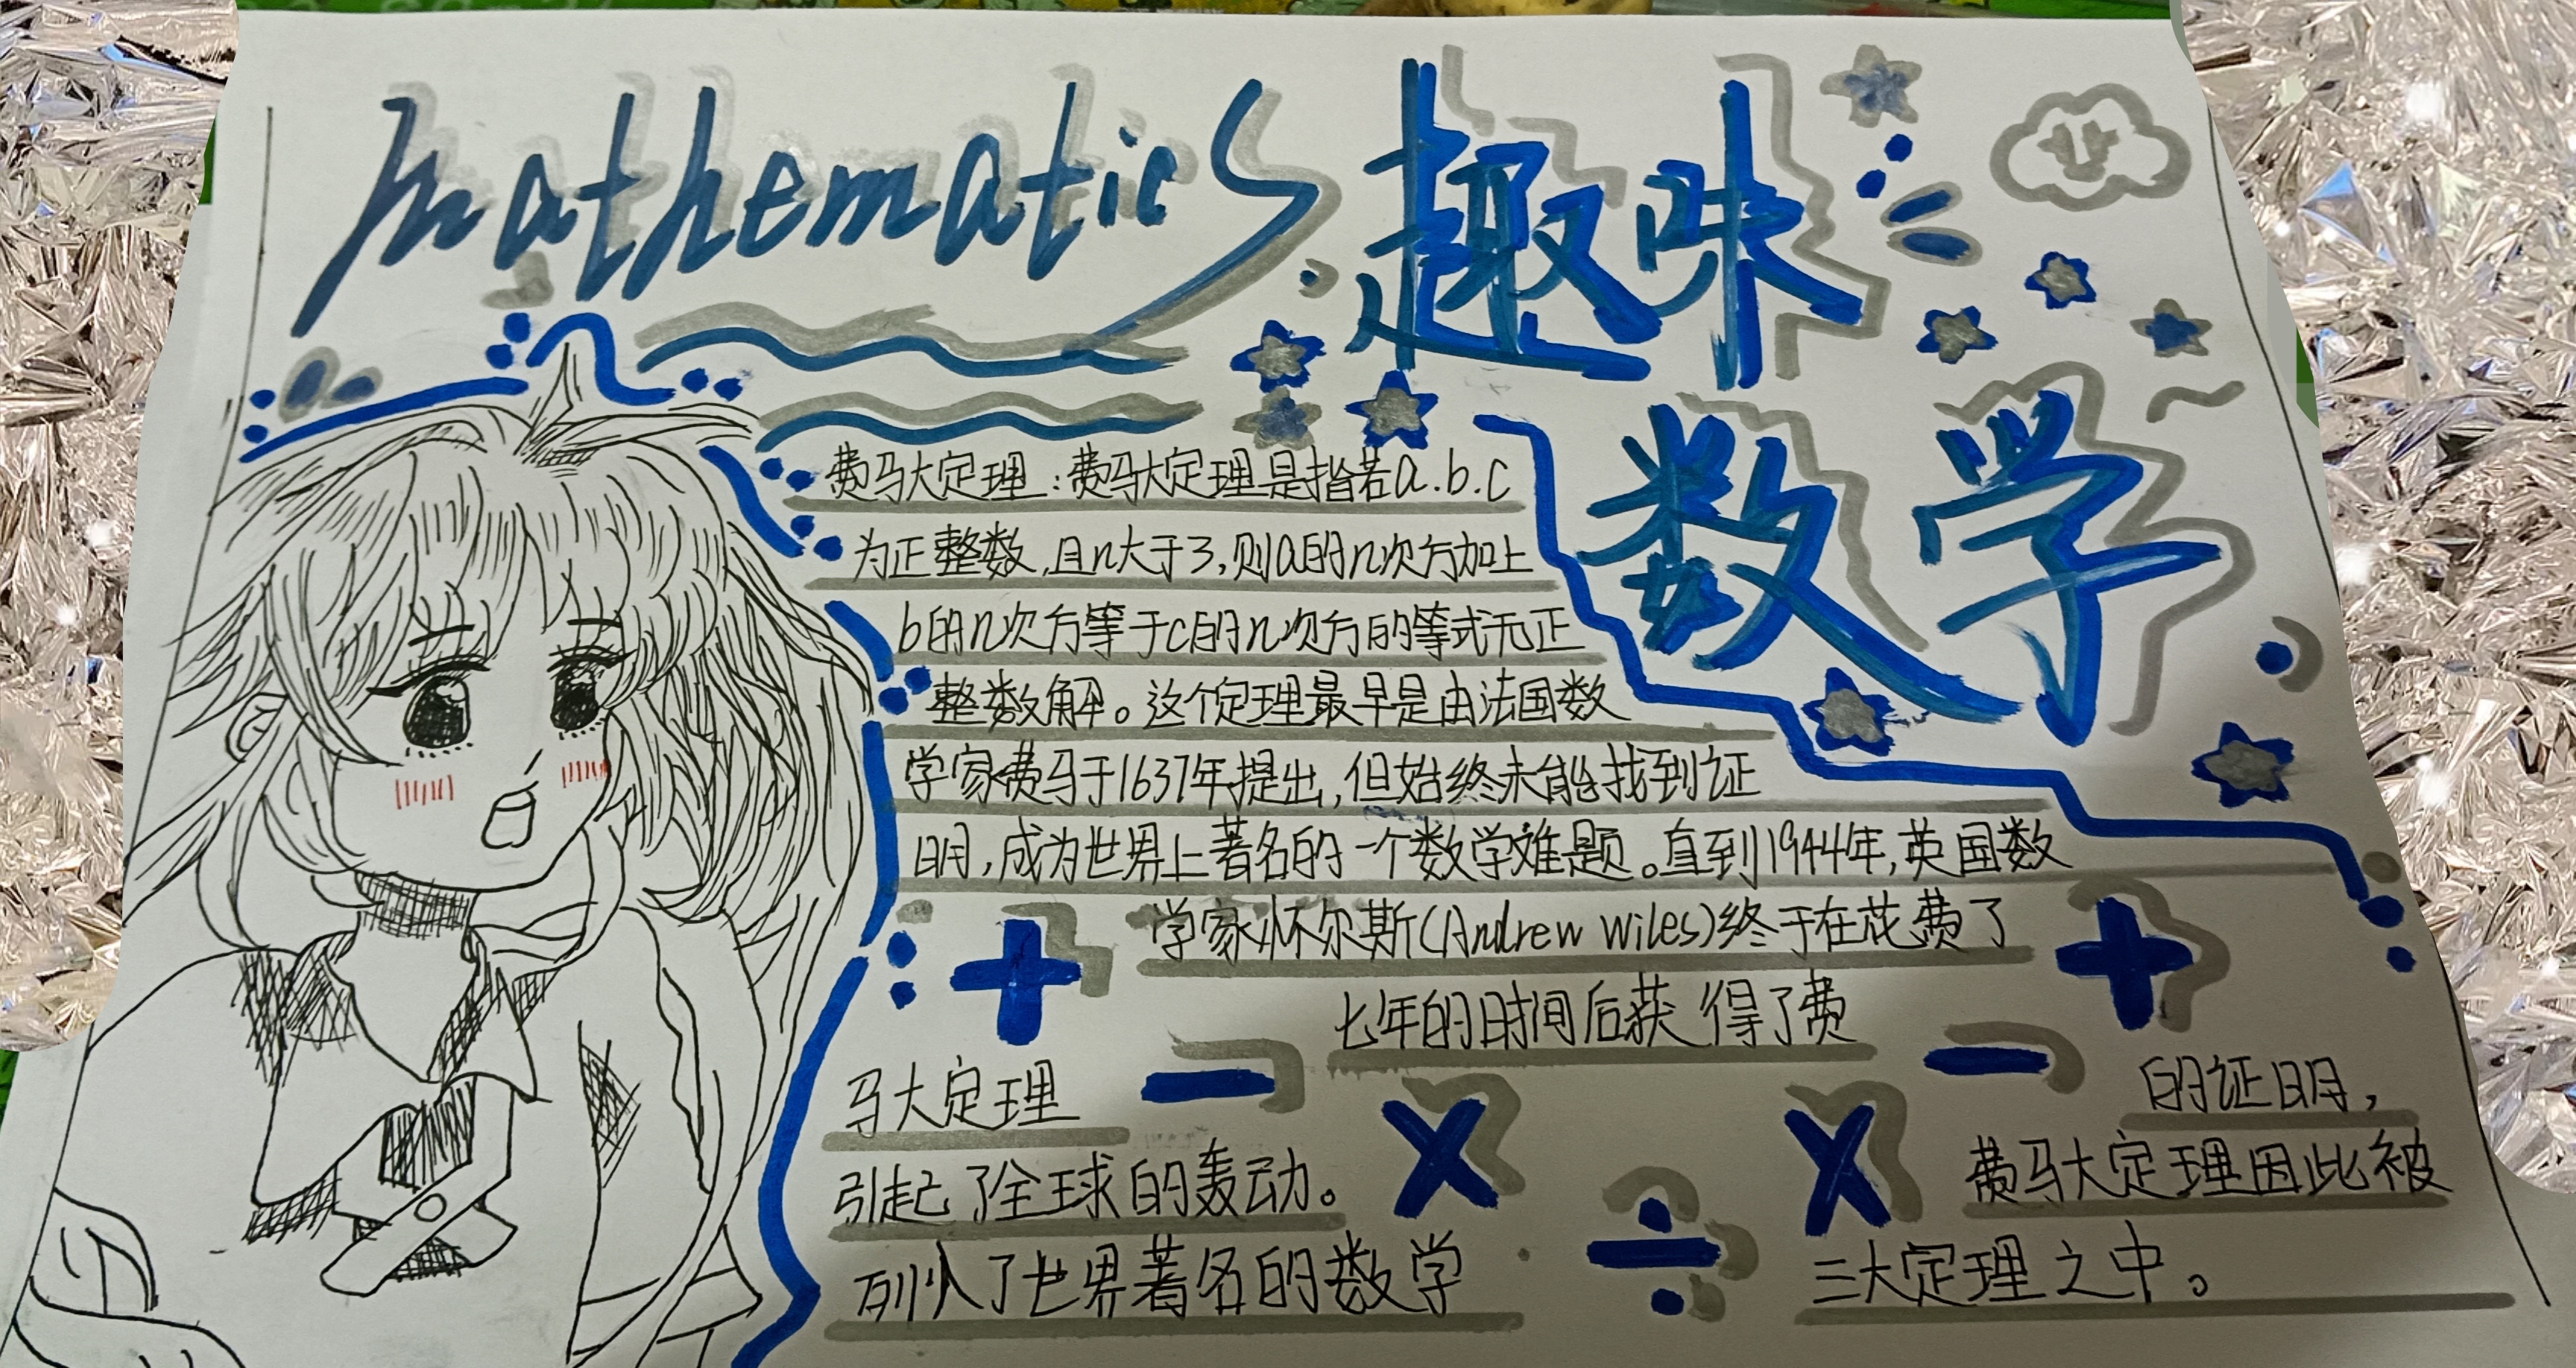 mathematics
趣味
数学
费马大定理:费马大定理是指若a.b.c
为正整数,且n大于3,则a的n次方加上
b的n次方等于c的n次方的等式无正
整数解。这个定理最早是由法国数
学家费马于1637年提出,但始终未能找到证
明,成为世界上著名的一个数学难题。直到1944年,英国数
学家怀尔斯(Andrew Wiles)终于在花费了
七年的时间后获得了费
马大定理 的证明,
引起了全球的轰动。 费马大定理因此被
列入了世界著名的数学 三大定理之中。